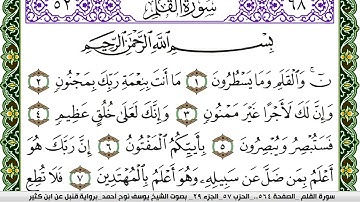 ٦٨ سُورَةُ القَلَمِ ٥٢
بِسْمِ اللَّهِ الرَّحْمَٰنِ الرَّحِيمِ
نٓ وَالْقَلَمِ وَمَا يَسْطُرُونَ ١ مَا أَنتَ بِنِعْمَةِ رَبِّكَ بِمَجْنُونٍ ٢
وَإِنَّ لَكَ لَأَجْرًا غَيْرَ مَمْنُونٍ ٣ وَإِنَّكَ لَعَلَىٰ خُلُقٍ عَظِيمٍ ٤
فَسَتُبْصِرُ وَيُبْصِرُونَ ٥ بِأَييِّكُمُ الْمَفْتُونُ ٦ إِنَّ رَبَّكَ هُوَ
أَعْلَمُ بِمَن ضَلَّ عَن سَبِيلِهِ وَهُوَ أَعْلَمُ بِالْمُهْتَدِينَ ٧ فَلَا تُطِعِ
سورة القلم الصفحة ٥٦٤... الحزب ٥٧ الجزء ٢٩ بصوت الشيخ يوسف نوح أحمد برواية قنبل عن ابن كثير